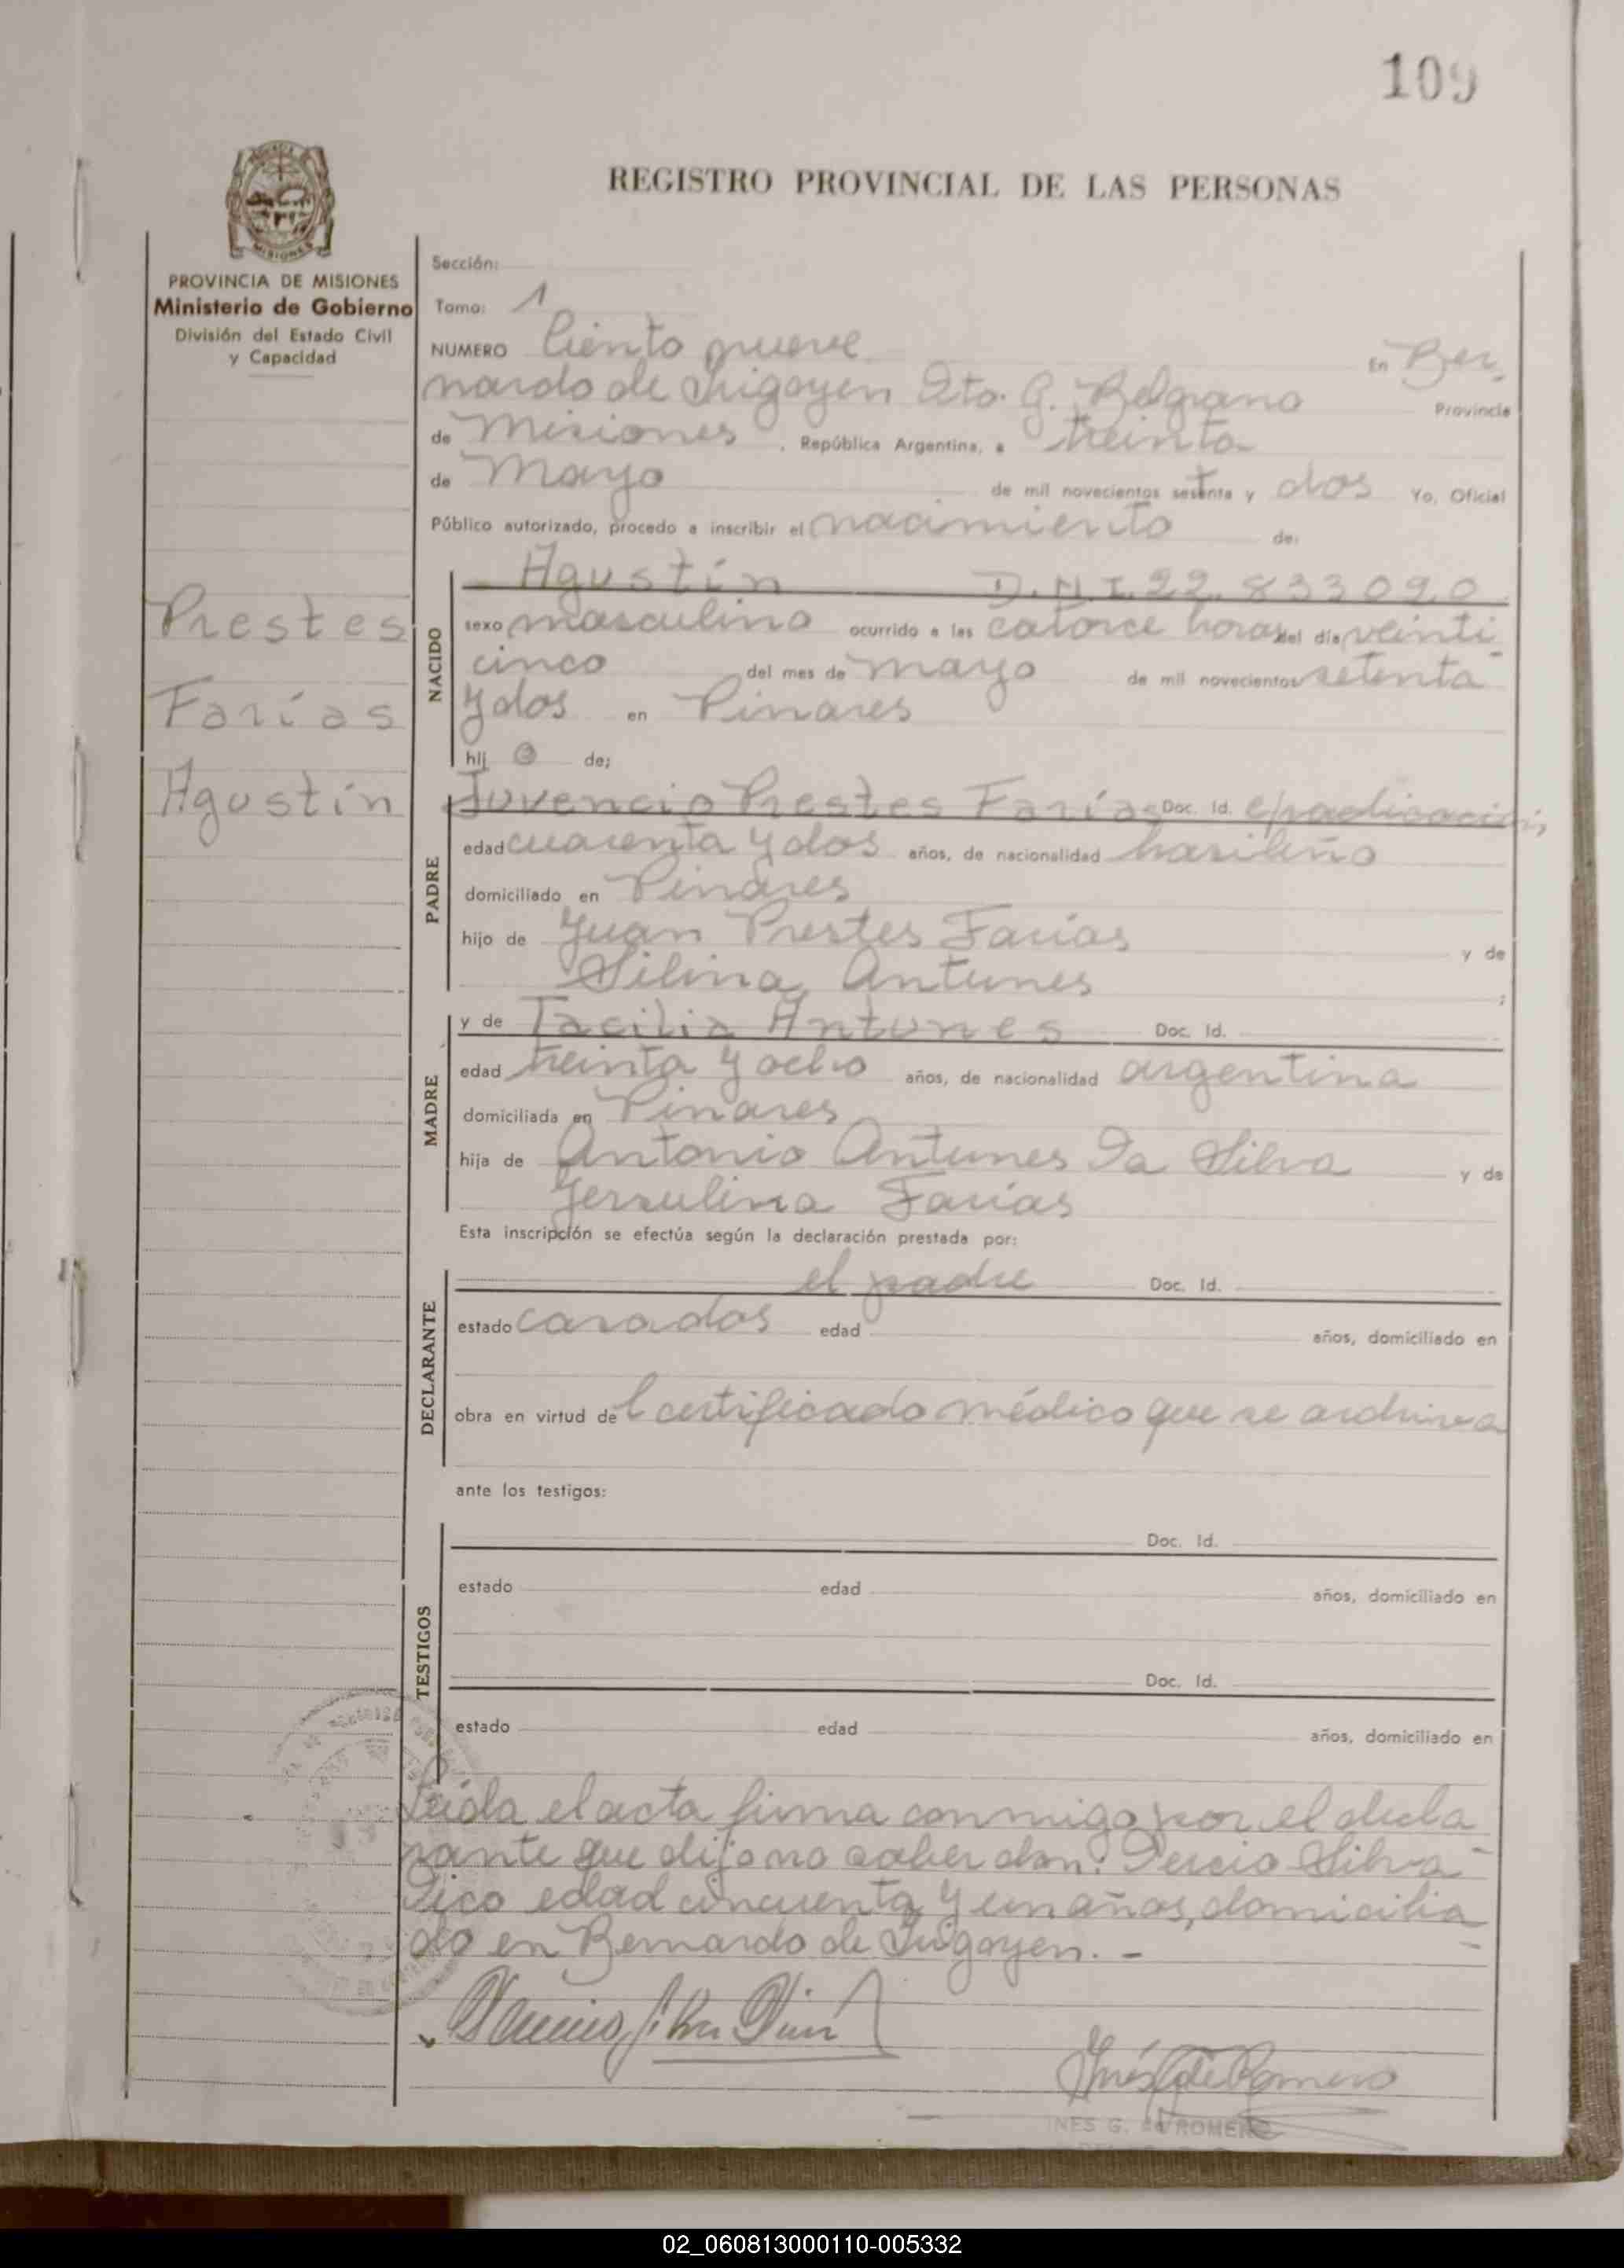 109
REGISTRO PROVINCIAL DE LAS PERSONAS
MISIONES
PROVINCIA DE MISIONES
Ministerio de Gobierno
División del Estado Civil
y Capacidad
Sección:
Tomo: 1
NUMERO Ciento nueve En Ber-
nardo de Irigoyen Dto. G. Belgrano Provincia
de Misiones, República Argentina, a treinta
de Mayo de mil novecientos setenta y dos Yo, Oficial
Público autorizado, procedo a inscribir el nacimiento de:
Prestes
Farías
Agustín
NACIDO
Agustín D.N.I. 22.833020
sexo masculino ocurrido a las catorce horas del día veinti-
cinco del mes de mayo de mil novecientos setenta
y dos en Pinares
hij o de;
PADRE
Juvencio Prestes Farías Doc. Id.
edad cuarenta y dos años, de nacionalidad brasileño
domiciliado en Pinares
hijo de Juan Prestes Farías y de
Silina Antunes ;
MADRE
y de Tacilia Antunes Doc. Id.
edad treinta y ocho años, de nacionalidad argentina
domiciliada en Pinares
hija de Antonio Antunes Da Silva y de
Jerzulina Farías
Esta inscripción se efectúa según la declaración prestada por:
DECLARANTE
el padre Doc. Id.
estado casados edad años, domiciliado en
obra en virtud del certificado médico que se archiva
ante los testigos:
TESTIGOS
Doc. Id.
estado edad años, domiciliado en
Doc. Id.
estado edad años, domiciliado en
Leída el acta firma conmigo por el decla
rante que dijo no saber don: Silva
edad cincuenta y un años, domicilia
do en Bernardo de Irigoyen. -
Inés G de Romero
INES G. de ROMERO
02_060813000110-005332